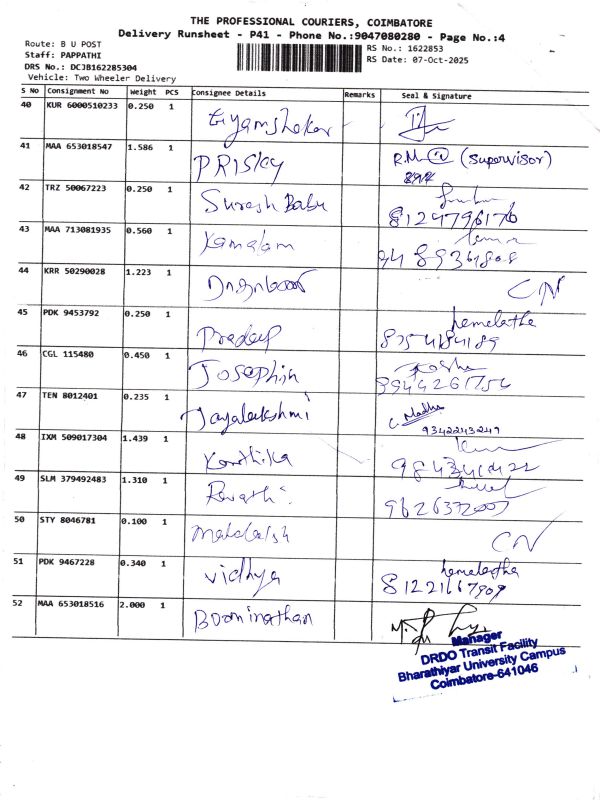 THE PROFESSIONAL COURIERS, COIMBATORE
Delivery Runsheet - P41 - Phone No.:9047080280 - Page No.:4
Route: B U POST
RS No.: 1622853
Staff: PAPPATHI
RS Date: 07-Oct-2025
DRS No.: DCJB162285304
Vehicle: Two Wheeler Delivery
S No Consignment No Weight PCS Consignee Details Remarks Seal & Signature
40 KUR 6000510233 0.250 1
41 MAA 653018547 1.586 1 PRISKY R.M (Supervisor)
42 TRZ 50067223 0.250 1 Suresh Babu
8124796176
43 MAA 713081935 0.560 1 Kamalam
44 KRR 50290028 1.223 1 CN
45 PDK 9453792 0.250 1 Pradeep hemelatha
46 CGL 115480 0.450 1 Josephin
9944261754
47 TEN 8012401 0.235 1 Jayalakshmi C. Madhu
9342243249
48 IXM 509017304 1.439 1 Karthika
49 SLM 379492483 1.310 1 Revathi
50 STY 8046781 0.100 1 CN
51 PDK 9467228 0.340 1 Vidhya hemelatha
52 MAA 653018516 2.000 1 Boominathan
Manager
DRDO Transit Facility
Bharathiyar University Campus
Coimbatore-641046